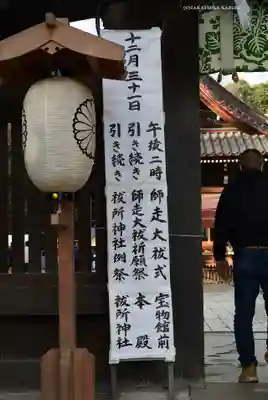 十二月三十一日
午後二時 師走大祓式 宝物館前
引き続き 師走大祓祈願祭 本殿
引き続き 祓所神社例祭 祓所神社